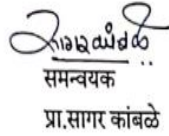 समन्वयक
प्रा.सागर कांबळे